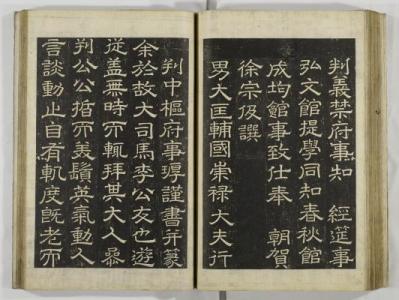 判義禁府事知 經筵事
弘文館提學同知春秋館
成均館事致仕奉 朝賀
徐宗伋撰
男大匡輔國崇祿大夫行
判中樞府事謹書幷篆
余於故大司馬李公友也遊
從蓋無時而輒拜其大人參
判公公晳而美鬚英氣動人
言談動止自有軌度旣老而